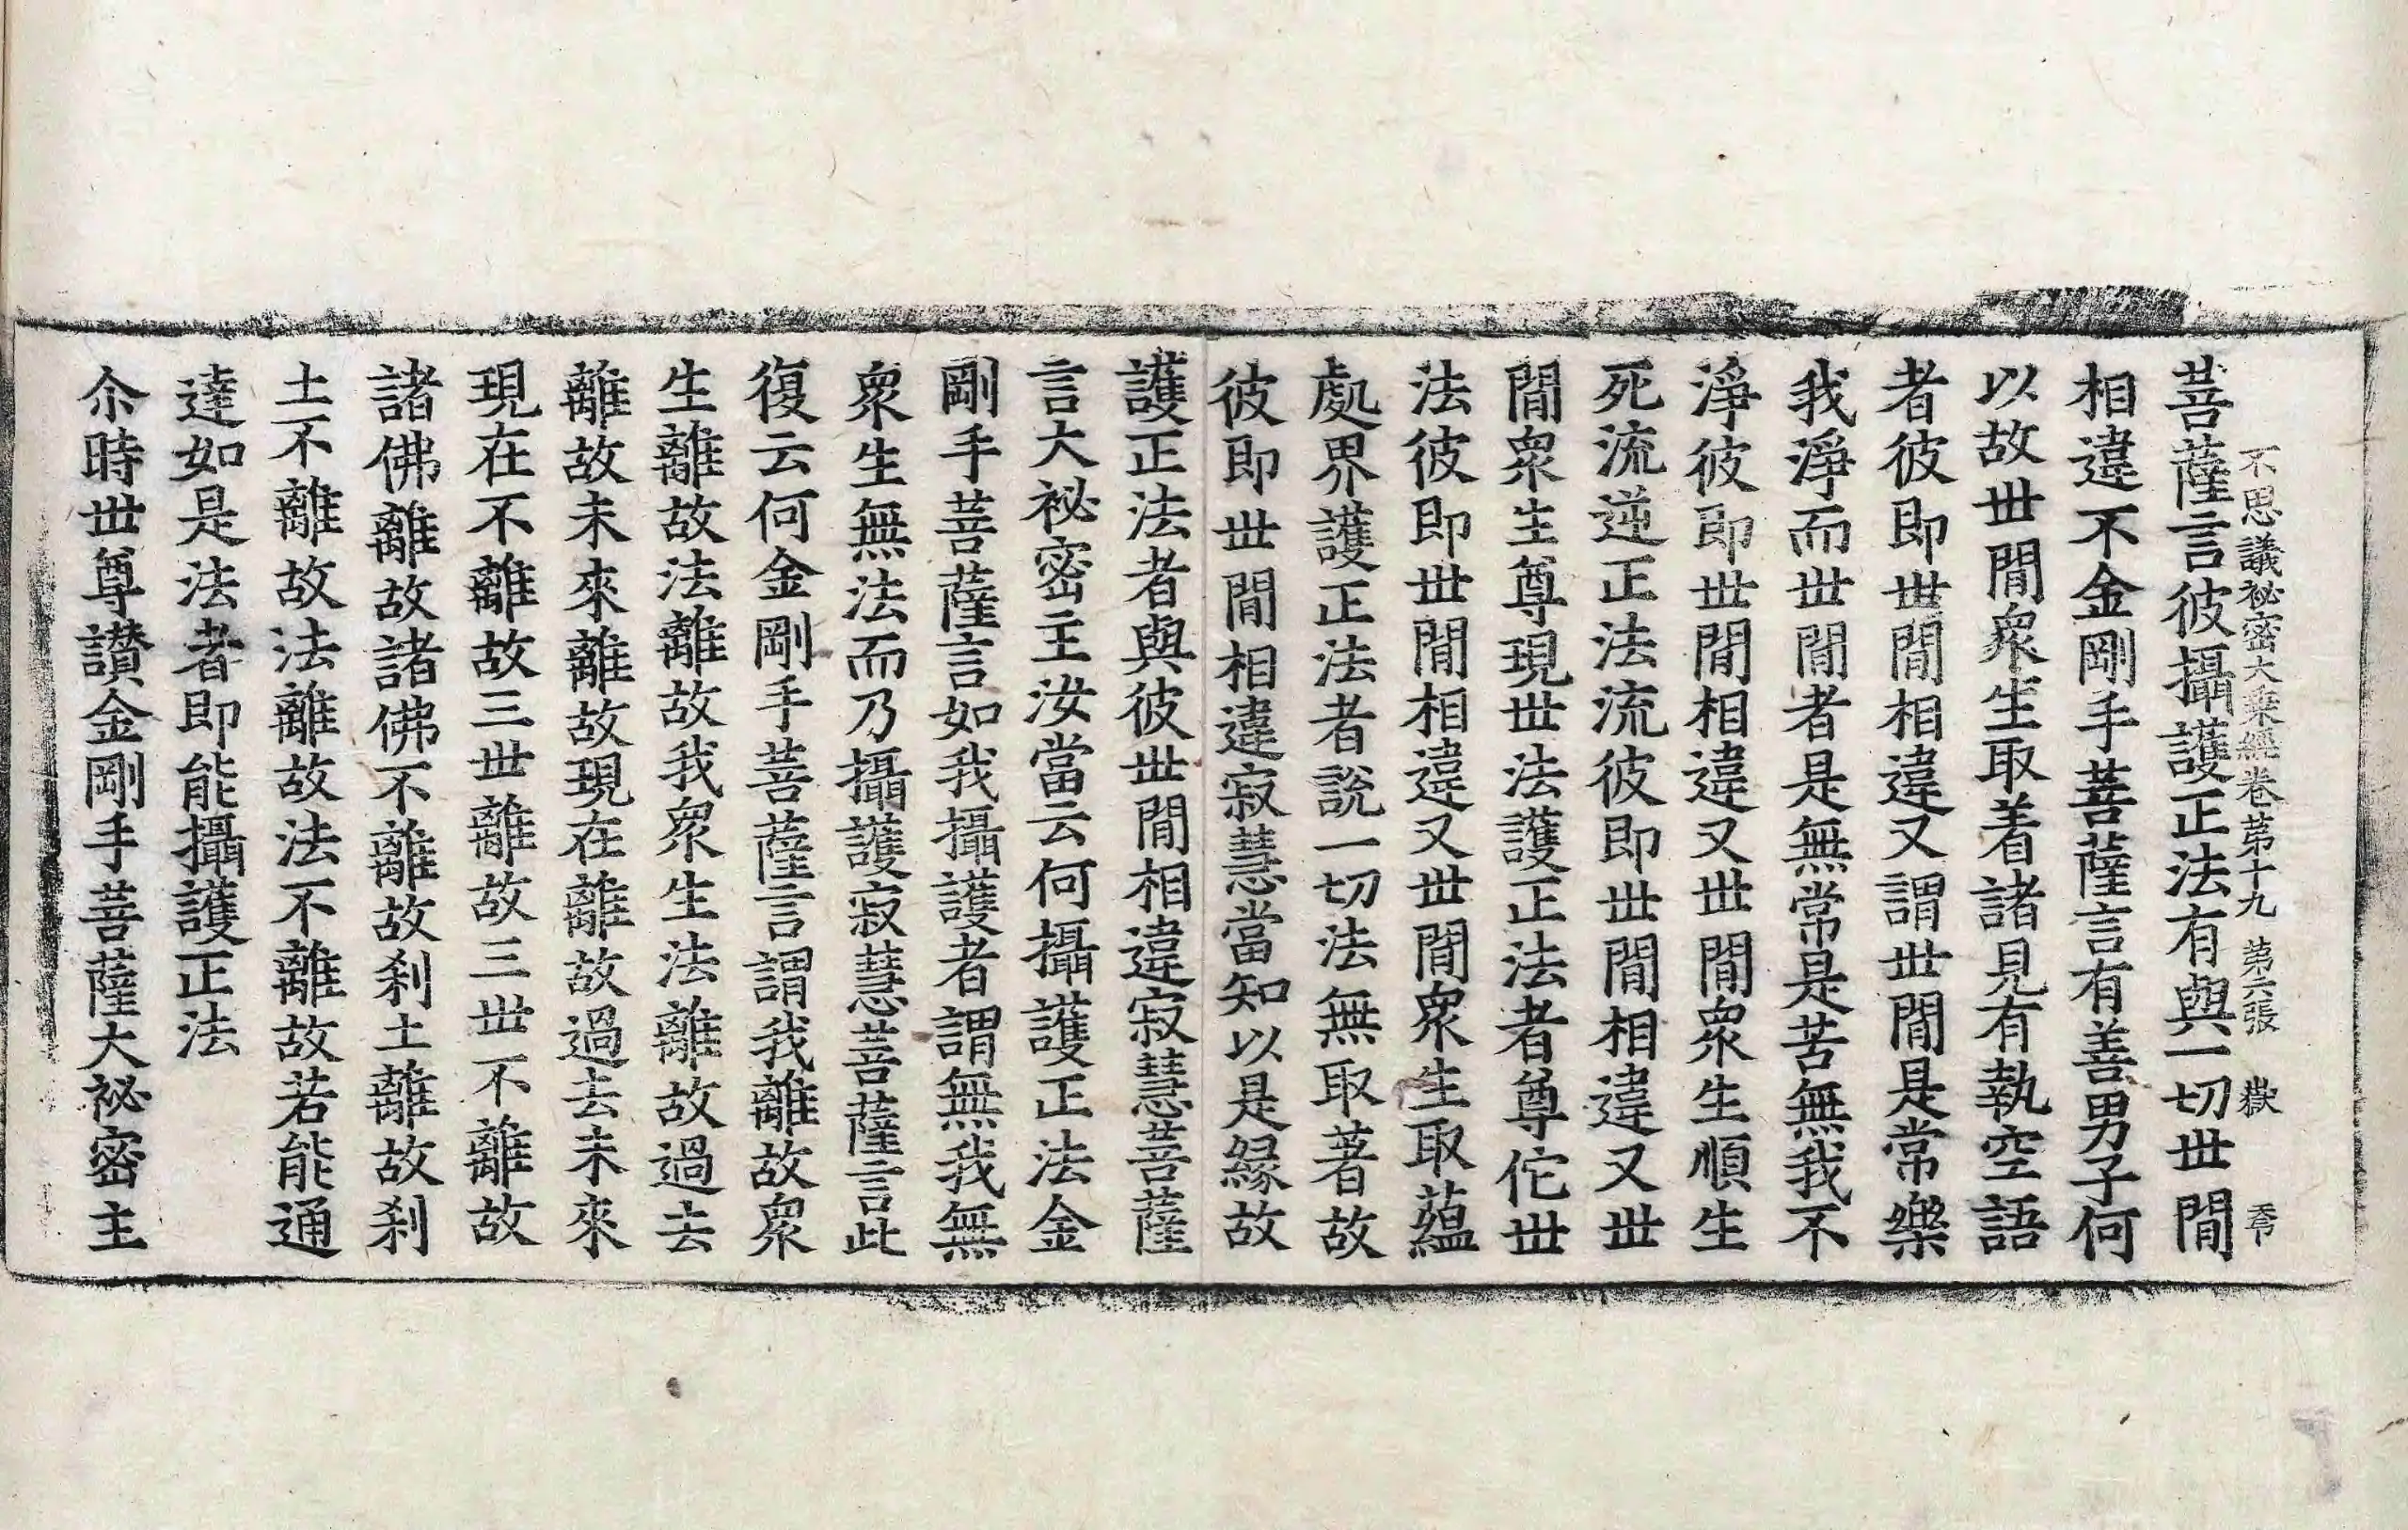 不思議祕密大乘經卷苐十九 第六張 嶽
菩薩言彼攝護正法有與一切世閒
相違不金剛手菩薩言有善男子何
以故世閒衆生取着諸見有執空語
者彼即世閒相違又謂世閒是常樂
我淨而世閒者是無常是苦無我不
淨彼即世閒相違又世閒衆生順生
死流逆正法流彼即世閒相違又世
閒衆生尊現世法護正法者尊佗世
法彼即世閒相違又世閒衆生取蘊
處界護正法者說一切法無取著故
彼即世閒相違寂慧當知以是緣故
護正法者與彼世閒相違寂慧菩薩
言大祕密主汝當云何攝護正法金
剛手菩薩言如我攝護者謂無我無
衆生無法而乃攝護寂慧菩薩言此
復云何金剛手菩薩言謂我離故衆
生離故法離故我衆生法離故過去
離故未來離故現在離故過去未來
現在不離故三世離故三世不離故
諸佛離故諸佛不離故刹土離故刹
土不離故法離故法不離故若能通
達如是法者即能攝護正法
尒時世尊讃金剛手菩薩大祕密主